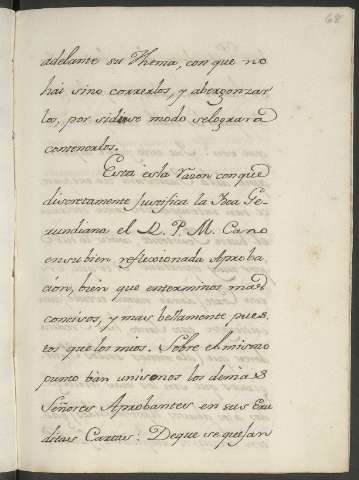 68
adelante su Thema, con que no
hai sino correrlos, y abergonzar
los, por si dese modo selograrà
contenerlos.
Esta esla razon conque
discretamente justifica la Idea Ge-
rundiana el R. P. M. Cano
ensu bien refleccionada Aproba-
ción, bien que enterminos mas
concisos, y mas bellamente pues-
tos que los mios. Sobre el mismo
punto bàn unisonos los demas
Señores Aprobantes en sus Eru
ditas Cartas. Deque se quejan